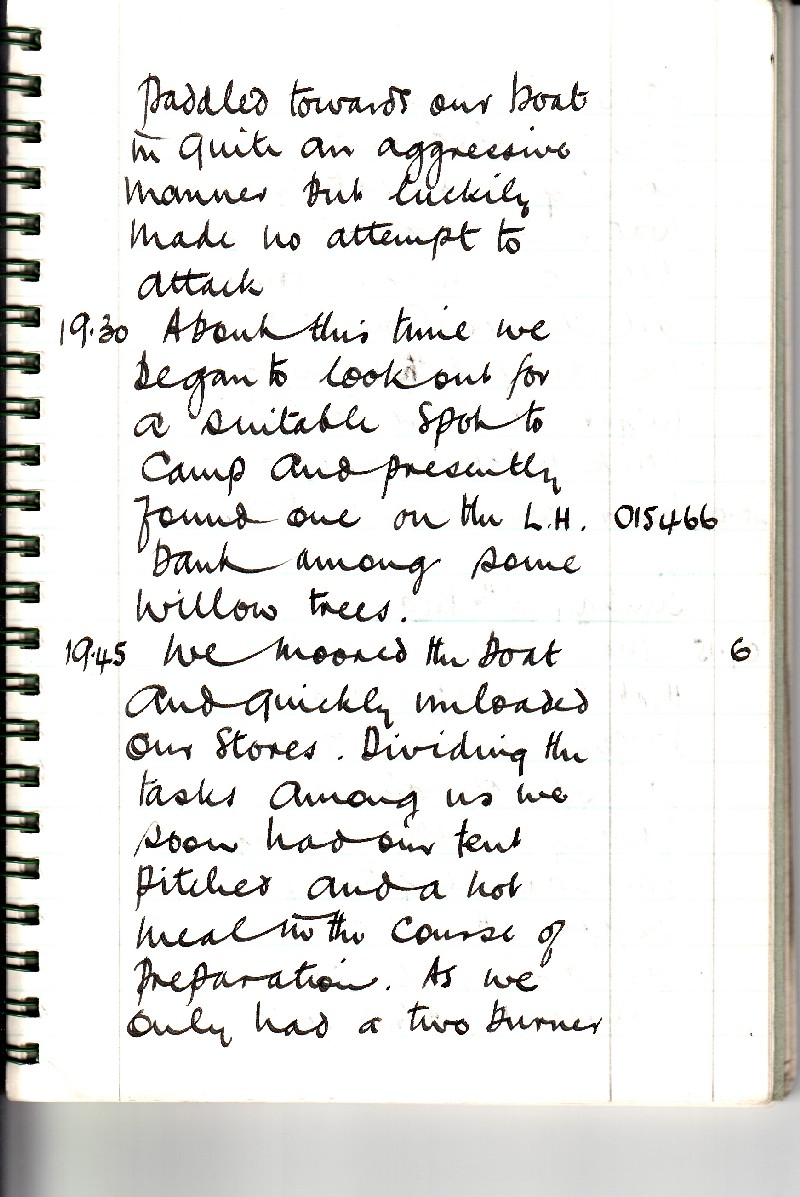 Paddled towards our boat
in quite an aggressive
manner but luckily
made no attempt to
attack
19.30 About this time we
began to look out for
a suitable spot to
camp and presently
found one on the L.H. 015466
bank among some
willow trees.
19.45 We moored the boat 6
and quickly unloaded
our stores. Dividing the
tasks among us we
soon had our tent
pitched and a hot
meal in the course of
preparation. As we
only had a two burner